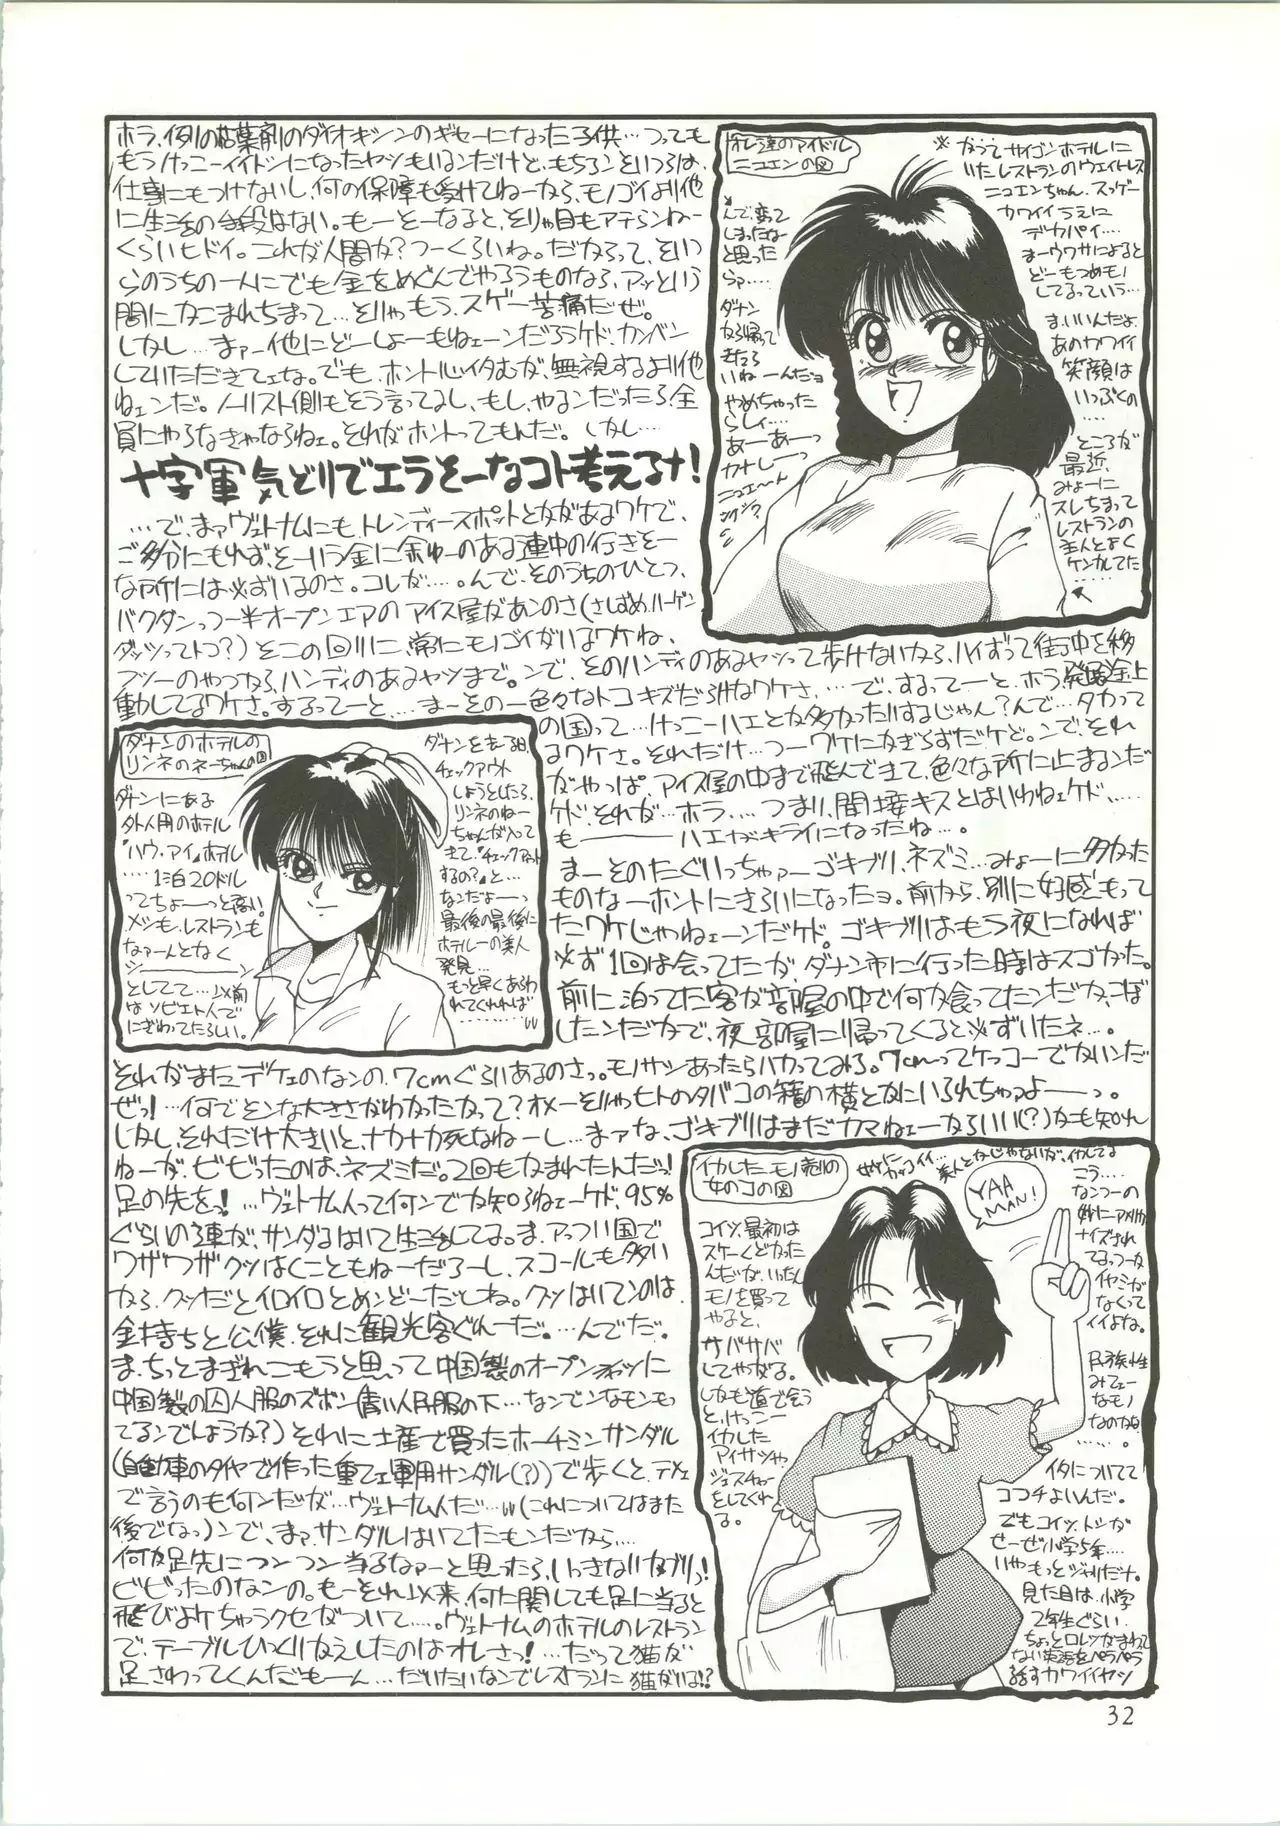 ホラ、例の枯葉剤のダイオキシンのギセーになった子供…つっても
もうけっこーイイトシになったヤツもいるンだけど、もちろンそいつらは、
仕事にもつけないし、何の保障も受けてねーから、モノゴイより他
に生活の手段はない。もーそーなると、そりゃ目もアテらんねー
くらいヒドイ。これが人間か?つーくらいね。だからって、そいつ
らのうちの一人にでも金をめぐんでやろうものなら、アッという
間にかこまれちまって…そりゃもう、スゲー苦痛だぜ。
しかし…まァー他にどーしよーもねェーンだろうケド、カンベン
していただきてェな。でも、ホント心イタむが、無視するより他
ねェンだ。ノーリスト側もそう言ってるし、もし、やるンだったら、全
員にやらなきゃならねェ。それがホントってもんだ。しかし…
十字軍気どりでエラそーなコト考えるナ!
…で、まァヴェトナムにも、トレンディースポットとかがあるワケで、
ご多分にもれず、そーいう金に余ゆーのある連中の行きそー
な所には必ずいるのさ。コレが…。んで、そのうちのひとつ、
バクダンっつー半オープンエアのアイス屋があンのさ(さしずめ、ハーゲン
ダッツってトコ?)そこの回りに、常にモノゴイがいるワケね、
フツーのやつから、ハンディのあるヤツまで。ンで、そのハンディのあるヤツって歩けないから、ハイずって街中を移
動してるワケさ。するってーと、…まーその一色々なトコキズだらけなワケさ、…で、するってーと、ホラ発展途上
の国って…けっこーハエとか多かったりするじゃん?んで…タカって
るワケさ。それだけ…つーワケにかぎらずだケど。ンで、それ
がやっぱ、アイス屋の中まで飛んできて、色々な所に止まるンだ
ケド、それが…ホラ…、つまり、間接キスとはいわねェケド、……
も――――ハエがキライになったね…。
まーそのたぐいっちゃァーゴキブリ、ネズミ…みょーに多かった
ものなーホントにきらいになったヨ。前から、別に好感もって
たワケじゃねェーンだケド。ゴキブリはもう夜になれば
必ず1回は会ってたが、ダナン市に行った時はスゴかった。
前に泊ってた客が部屋の中で何か食ってたンだか、こぼ
したンだかで、夜、部屋に帰ってくると必ずいたネ…。
それがまた、デケェのなンの、7cmぐらいあるのさっ。モノサシあったらハカってみろ。7cmってケッコーでかいンだ
ぜっ!…何でそンな大きさがわかったかって?オメーそりゃヒトのタバコの箱の横とかにいられちゃっよ――っ。
しかし、それだけ大きいと、ナカナカ死なねーし…まァな、ゴキブリはまだカマねェーからいい(?)かも知れ
ねーが、ビビったのは、ネズミだ。2回もかまれたんだっ!
足の先を!…ヴェトナム人って何ンでか知らねェーケド、95%
ぐらいの連中が、サンダルはいて生活してる。ま、アっつい国で
ワザワザクツはくこともねーだろーし、スコールも多い
から、クツだとイロイロとめンどーだしね。クツはいてンのは、
金持ちと公僕、それに観光客ぐれーだ。…んでだ。
ま、ちっとまぎれこもうと思って中国製のオープンシャツに
中国製の囚人服のズボン(青い人民服の下…なンでンなモンもっ
てるンでしょうか?)それに土産で買ったホーチミンサンダル
(自動車のタイヤで作った重てェ軍用サンダル(?))で歩くと、テメェ
で言うのも何ンだが…ヴェトナム人だ…(これについてはまた
後でなっ)ンで、まァサンダルはいてたもンだから…
何か足先にツンツン当るなァーと思ったら、いっきなりガブリっ!
ビビったのなンの。もーそれ以来、何に関しても足に当ると
飛びよけちゃうクセがついて…。ヴェトナムのホテルのレストラン
で、テーブルひっくりかえしたのはオレさっ!…だって猫が
足さわってくんだもーん、…だいたいなンでレストランに猫がいる!?
オレ達のアイドル
ニュエンの図
※かつてサイゴンホテルに
いたレストランのウェイトレス
ニュエンちゃん、スッゲー
カワイイうえに
デカパイ…
まーウワサによると
どーもつめモノ
してるっていう…
ま、いいんだよ、
あのカワイイ
笑顔は
いっぷくの
……
ところが
最近、
みょーに
スレちまって
レストランの
主人とよく
ケンカしてた
……
んで、変って
しまったなー
と思った
らァ……
ダナン
から帰って
きたら
いねーんだヨ
やめちゃった
らしィ……
あーあーっ
カナしーっ
ニュエ〜ん
ダナンのホテルの
リンネのネーちゃんの図
ダナンにある
外人用のホテル
「ハウ・アイ」ホテル
……1泊20ドル
ってちょーっと高い。
メシも、レストランも
なァーんとなく
シ――――ン
としてて…、以前
は ソビエト人で
にぎわってたらしい。
ダナンを去る日、
チェックアウト
しようとしたら、
リンネのねー
ちゃんが入って
きて、「チェックアウト
するの?」と…
なンだよーっ
最後の最後に
ホテル一の美人
発見…
もっと早くあらわ
れてくれれば
イカしたモノ売りの
女のコの図
せけにカッコイイ…
美人とかじゃないが、イカしてる
YAA
MAN!
コイツ、最初は
スゲーくどかった
んだが、いったん
モノを買って
やると、
サバサバ
してやがる。
しかも道で会う
と、けっこー
イカした
アイサツや
ジェスチャー
をしてくれ
る。
こう…
なンつーの
妙にアメリカ
ナイズされ
てるっつーか
イヤミが
なくって
イイよな。
民族性
みてェー
なモノ
なのか
……。
イタについてて
ココチよいんだ。
でもコイツ、トシが
せーぜい小学5年…
いやもっとジャリだナ。
見た目は、小学
2年生ぐらい、
ちょっとロレツがまわって
ない英語をペラペラ
話すカワイイヤツ
32